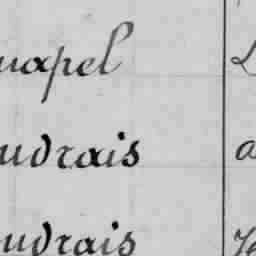 uapel
udrais
udrais